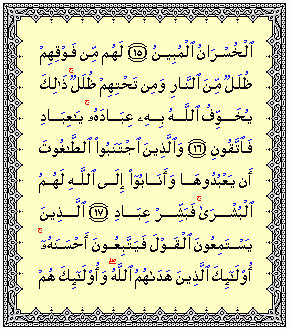 ٱلۡخُسۡرَانُ ٱلۡمُبِينُ ١٥ لَهُم مِّن فَوۡقِهِمۡ
ظُلَلٞ مِّنَ ٱلنَّارِ وَمِن تَحۡتِهِمۡ ظُلَلٞۚ ذَٰلِكَ
يُخَوِّفُ ٱللَّهُ بِهِۦ عِبَادَهُۥۚ يَٰعِبَادِ
فَٱتَّقُونِ ١٦ وَٱلَّذِينَ ٱجۡتَنَبُواْ ٱلطَّٰغُوتَ
أَن يَعۡبُدُوهَا وَأَنَابُوٓاْ إِلَى ٱللَّهِ لَهُمُ
ٱلۡبُشۡرَىٰۚ فَبَشِّرۡ عِبَادِ ١٧ ٱلَّذِينَ
يَسۡتَمِعُونَ ٱلۡقَوۡلَ فَيَتَّبِعُونَ أَحۡسَنَهُۥٓۚ
أُوْلَٰٓئِكَ ٱلَّذِينَ هَدَىٰهُمُ ٱللَّهُۖ وَأُوْلَٰٓئِكَ هُمۡ